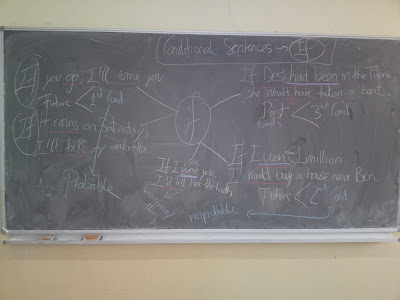 Conditional Sentences → If
If you go, I'll come you
Future < 1st Cond
If rains on Saturday,
I'll take my umbrella
Probable
If
If Desy had been in the Titanic,
she would have taken a boat.
Past < 3rd Cond
If I were you,
I'll tell her the truth
If I won € 1 million.
I would buy a house near Bcn.
Future < 2nd Cond
improbable